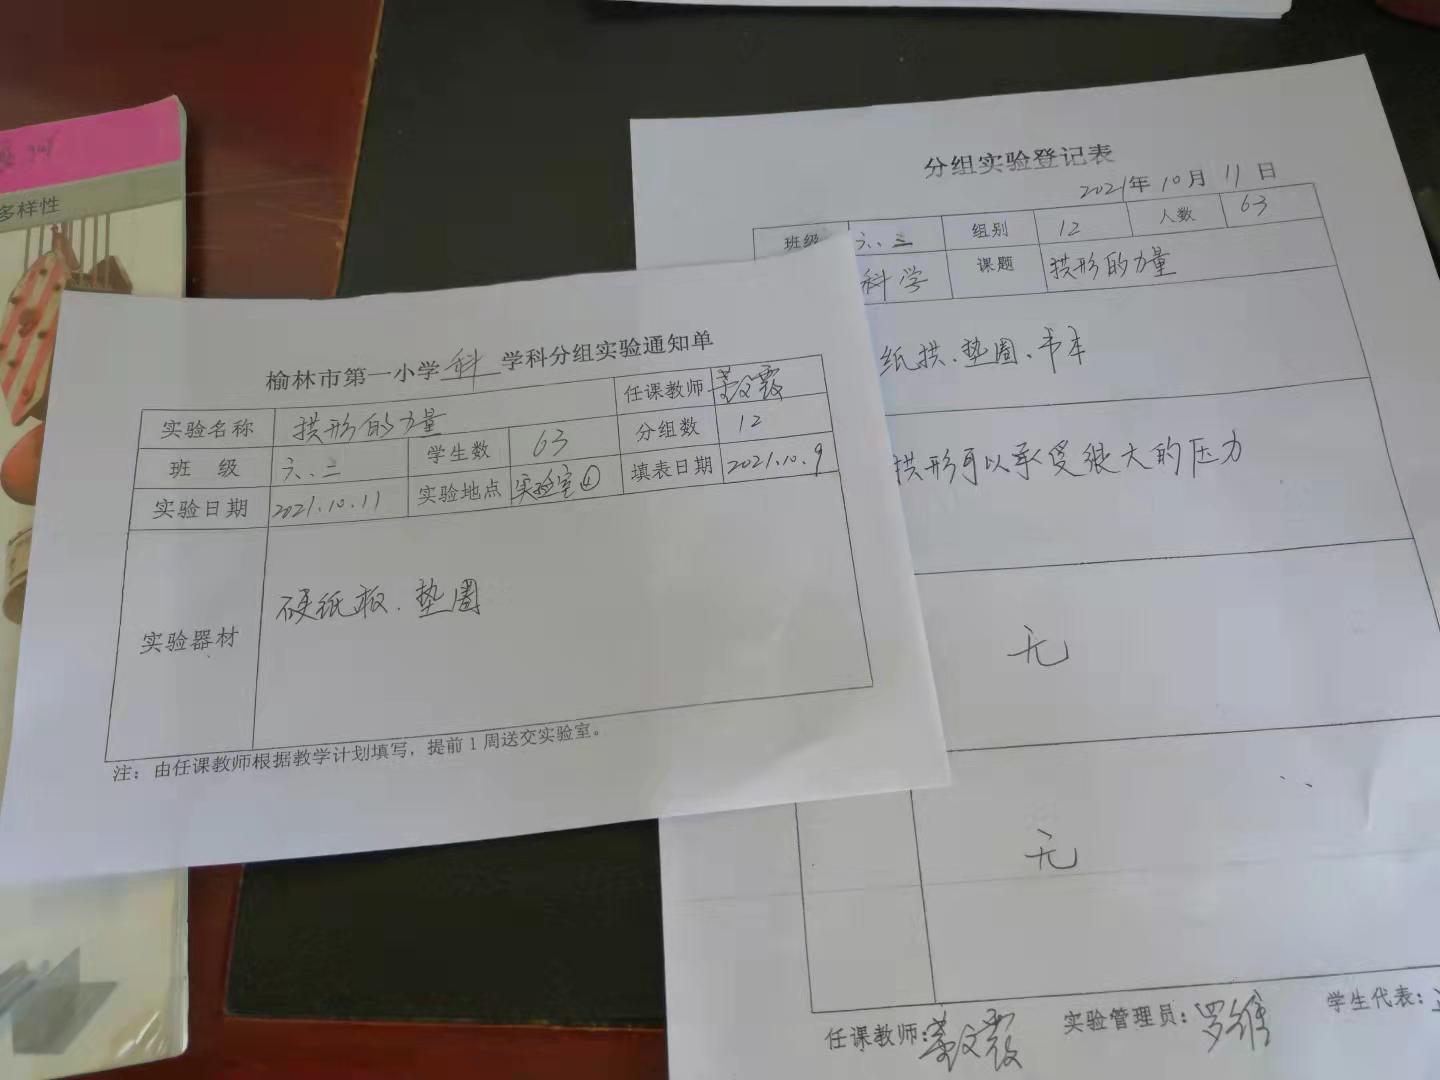 多样性
榆林市第一小学科学科分组实验通知单
实验名称 拱形的力量 任课教师
班 级 六、二 学生数 63 分组数 12
实验日期 2021.10.11 实验地点 实验室④ 填表日期 2021.10.9
实验器材 硬纸板、垫圈
注：由任课教师根据教学计划填写，提前1周送交实验室。
分组实验登记表
2021年10月11日
班级 六、三 组别 12 人数 63
科学 课题 拱形的力量
纸拱、垫圈、书本
拱形可以承受很大的压力
无
无
任课教师： 实验管理员：罗维 学生代表：